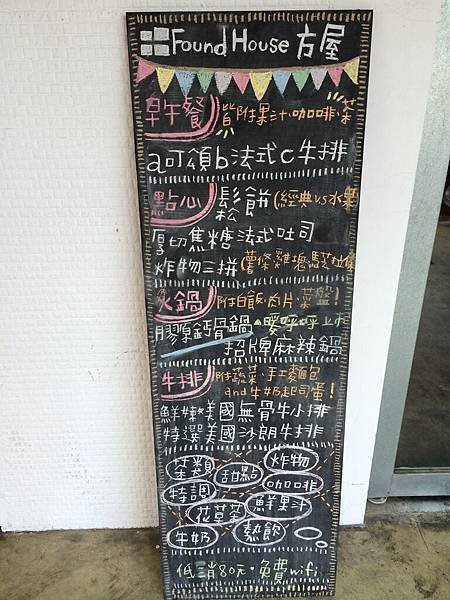 Found House 方屋
早午餐 皆附果汁.咖啡.茶
a可頌b法式c牛排
點心 鬆餅(經典vs水果
厚切焦糖法式吐司
炸物三拼(薯條雞塊
火鍋 附白飯.肉片.菜盤!
膠原鈣骨鍋 暖呼呼上市
招牌麻辣鍋
牛排 附蔬菜.手工麵包
and牛奶起司蛋!
鮮嫩美國無骨牛小排
特選美國沙朗牛排
茶類 甜點 炸物
特調 咖啡
花草茶 鮮果汁
牛奶 熱飲
低消80元.免費wifi